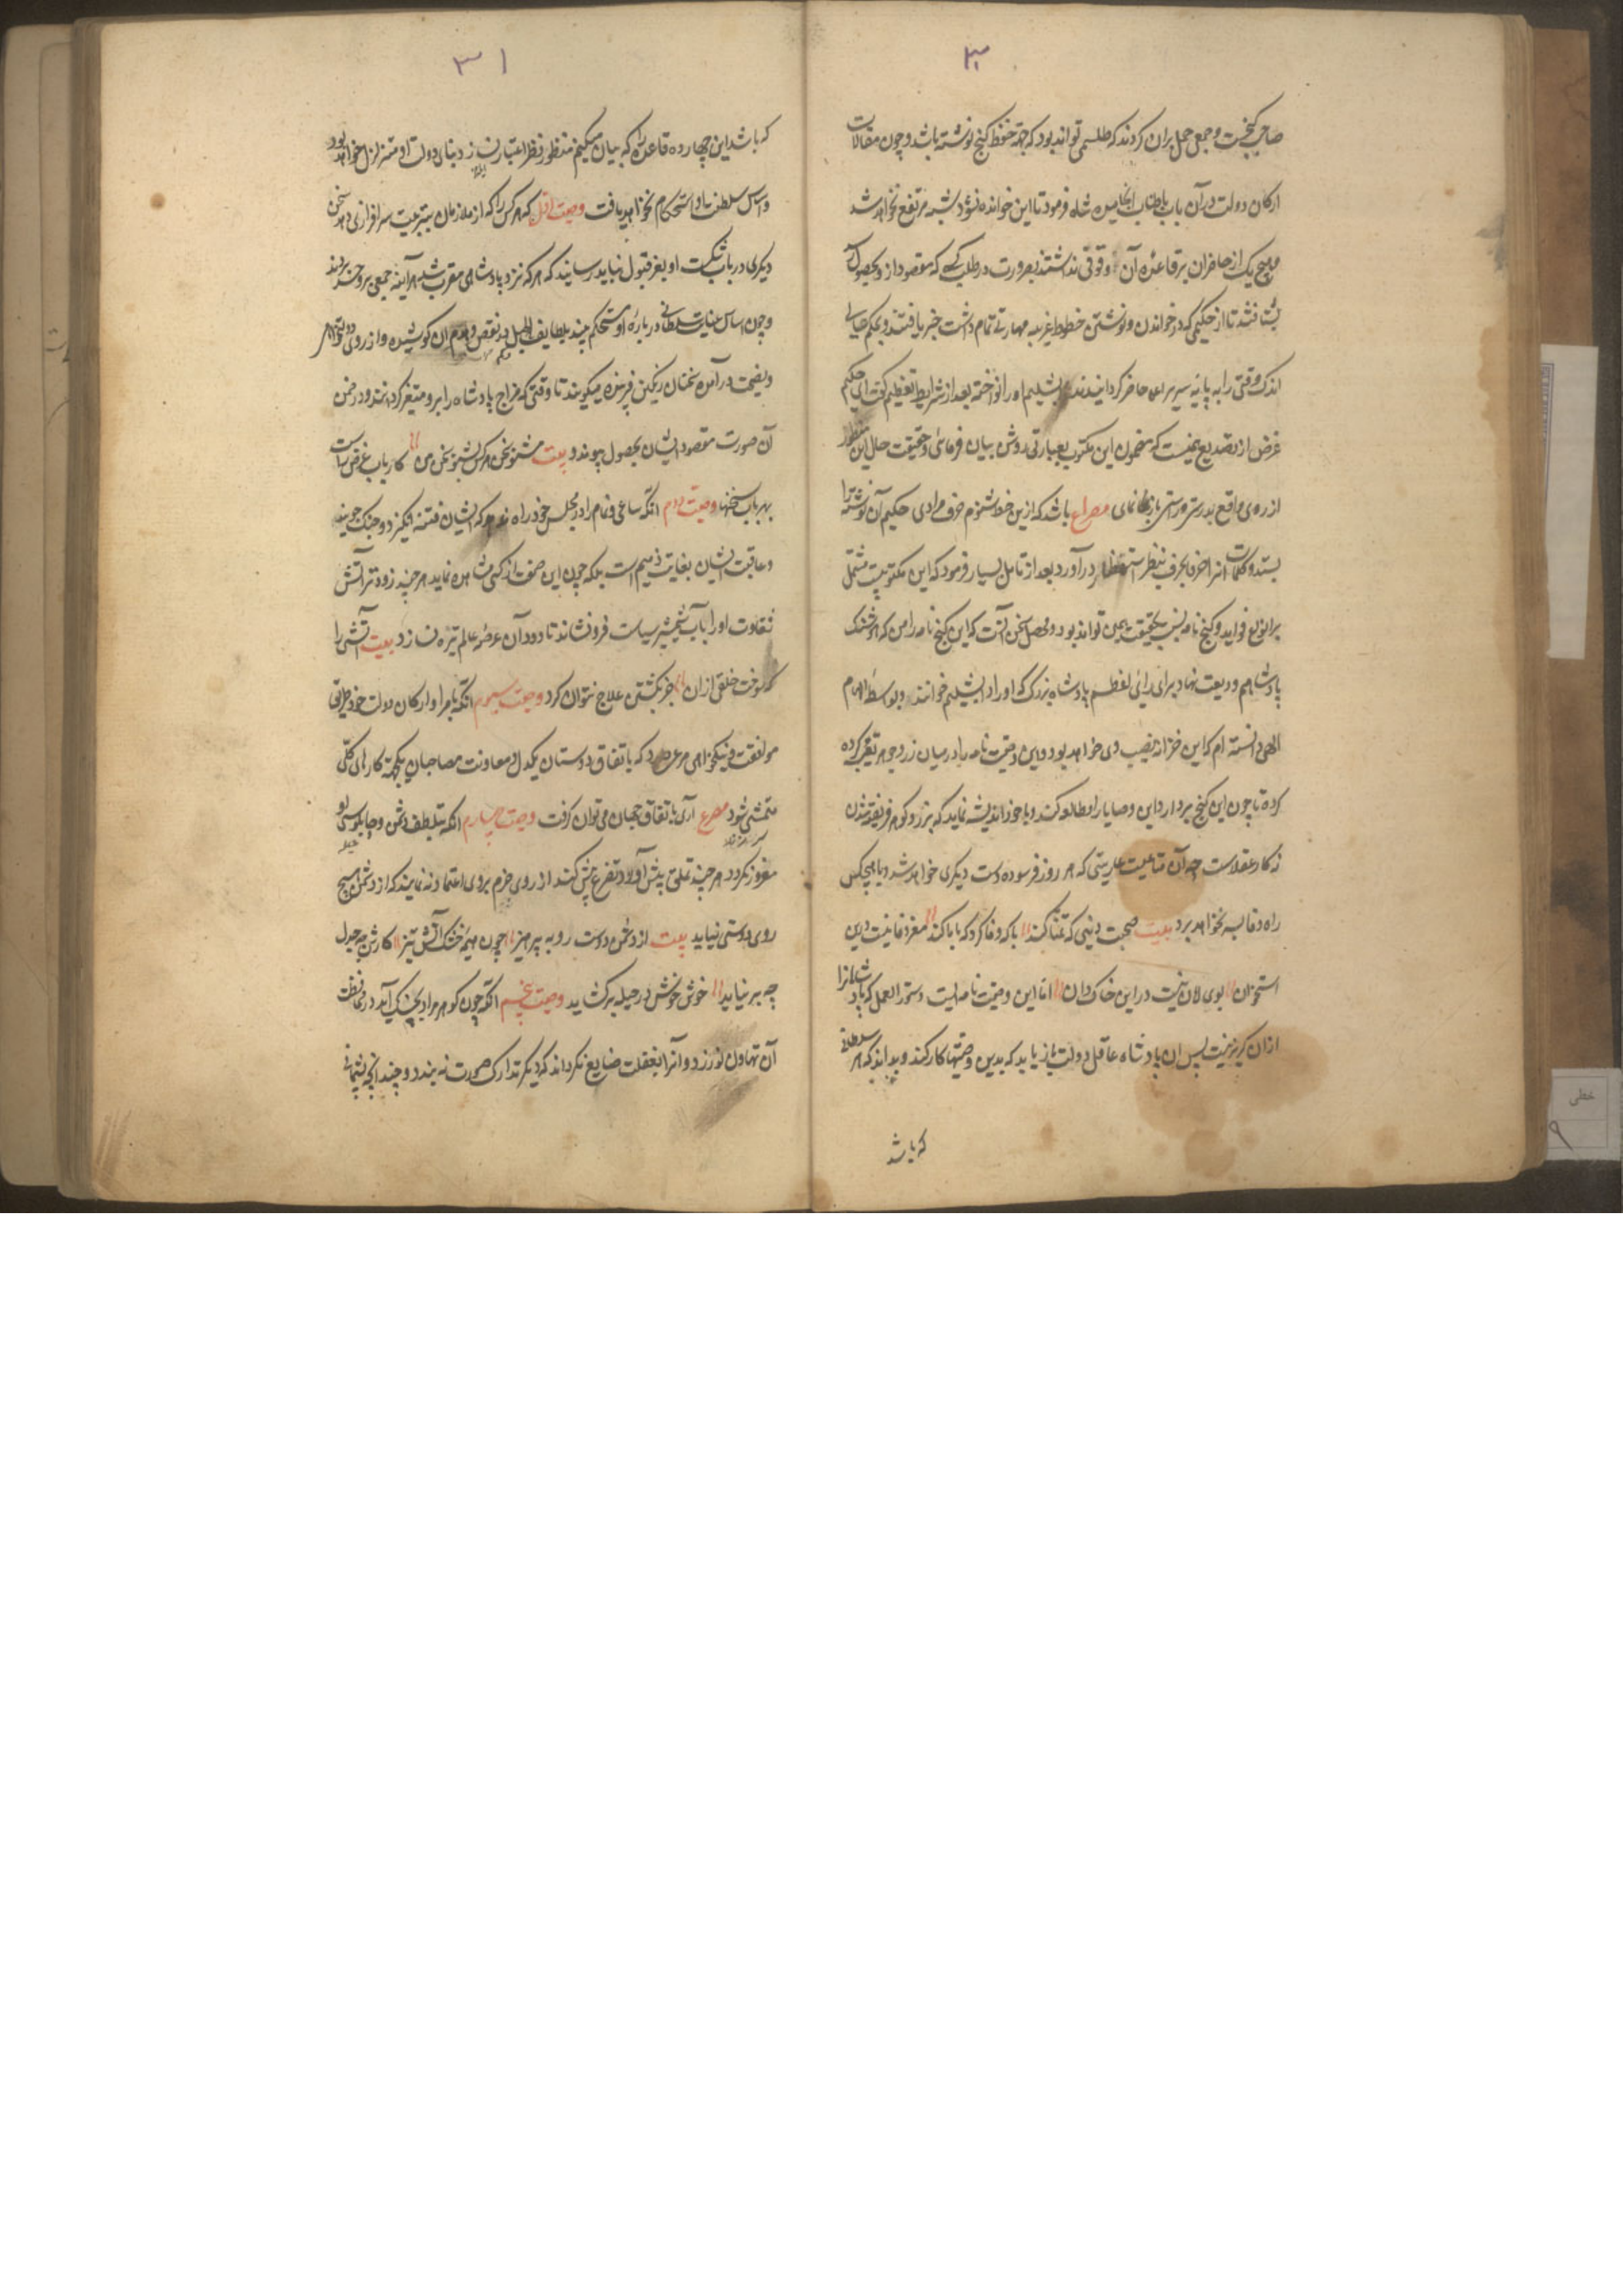 ۳۰
صاحب گنجست و جمعی حمل بران کردند که طلسمی تواند بود که جهة حفظ گنج نوشته باشد و چون مقالات
ارکان دولت در آن باب باطناب انجامید شاه فرمود تا این خوانده نشود شبه مرتفع نخواهد شد
و هیچ یک از حاضران بر قاعده آن وقوفی نداشتند بضرورت در طلب کسی که مقصود از و بحصول
بشتافتند تا از حکیمی که در خواندن و نوشتن خطوط غریبه مهارتی تمام داشت خبر یافتند و بحکم عالی
اندک وقتی را به پایه سریر اعلی حاضر گردانیدند دابشلیم او را نواخته بعد از شرایط تعظیم گفت ای حکیم
غرض از تصدیع نیست که مضمون این مکتوب بعبارتی روشن بیان فرمائی و حقیقت حال این منظور
از روی واقع بدرستی و راستی باز نمای مصراع باشد که ازین خط شنوم حرف مرادی حکیم آن نوشته را
بستد و کلمات آنرا حرفا بحرف بنظر استحضار درآورد بعد از تامل بسیار فرمود که این مکتوبیست مشتمل
بر انواع فواید و گنج نامه بحقیقت همین تواند بود و محصل سخن آنست که این گنج نامه را من که هوشنک
پادشاهم ودیعت نهادم برای رای اعظم پادشاه بزرک که او را دابشلیم خوانند و بواسطه الهام
الهی دانسته ام که این خزانه نصیب وی خواهد بود و این وصیت نامه را در میان زر و جوهر تعبیه کرده
کرده تا چون این گنج بردارد این وصایا را مطالعه کند و با خود اندیشه نماید که بزر و گوهر فریفته شدن
نه کار عقلاست چه آن متاعیست عاریتی که هر روز فرسوده دست دیگری خواهد شد و با هیچکس
راه وفا بسر نخواهد برد بیت صحبت دنیی که تمنا کند با که وفا کرد که با ما کند مغز وفا نیست درین
استخوان بوی امان نیست در این خاک دان اما این وصیت نامه ایست دستور العمل که پادشاهانرا
ازان گریز نیست پس آن پادشاه عاقل دولت یار باید که بدین وصیتها کار کند و بداند که هر سلطانی
که باشد
۳۱
که باشد این چهارده قاعده را که بیان میکنیم منظور نظر اعتبار نسازد بنای دولت او متزلزل خواهد بود
و اساس سلطنت او استحکام نخواهد یافت وصیت اول که هر کس را که از ملازمان بتربیت سرافرازی دهد سخن
دیگری در باب شکست او بعز قبول نباید رسانید که هر که نزد پادشاهی مقرب شد هر آینه جمعی برو حسد برند
و چون اساس عنایت سلطانی درباره او مستحکم بینند بلطایف الحیل در نقض و هدم آن کوشیده و از روی دولتخواهی
و نصیحت درآمده سخنان رنگین فریبنده میگویند تا وقتی که مزاج پادشاه را برو متغیر گردانند و در ضمن
آن صورت مقصود ایشان بحصول پیوندد بیت مشنو سخن هر کس بشنو سخن من کارباب غرض راست
بهر باب سخنها وصیت دوم آنکه ساعی و نمام را در مجلس خود راه ندهد که ایشان فتنه انگیز و جنک جویند
و عاقبت ایشان بغایت ذمیم است بلکه چون این صفت از کسی مشاهده نماید هر چند زودتر آتش
سعایت او را بآب شمشیر سیاست فرونشاند تا دود آن عرصه عالم تیره نسازد بیت آتشی را
که سوخت خلقی ازان جز بکشتن علاج نتوان کرد وصیت سیوم آنکه با امرا و ارکان دولت خود طریق
موافقت و نیکخواهی مرعی دارد که باتفاق دوستان یکدل و معاونت مصاحبان یکجهة کارهای کلی
متمشی شود مصرع آری باتفاق جهان میتوان گرفت وصیت چهارم آنکه بتلطف دشمن و چاپلوسی او
مغرور نگردد هر چند تملق پیش آورد و تضرع پیش کند از روی حزم بروی اعتماد ننماید که از دشمن هیچ
روی دوستی نیاید بیت از دشمن دوست رو بپرهیز چون هیمه خشک از آتش تیز کارش چو جدل
چه بر نیاید خوش خوش در حیله برگشاید وصیت پنجم آنکه چون گوهر مراد بچنگ آید در محافظت
آن تهاون نورزد و آنرا بغفلت ضایع نگرداند که دیگر تدارک صورت نه بندد و چندانچه پشیمانی